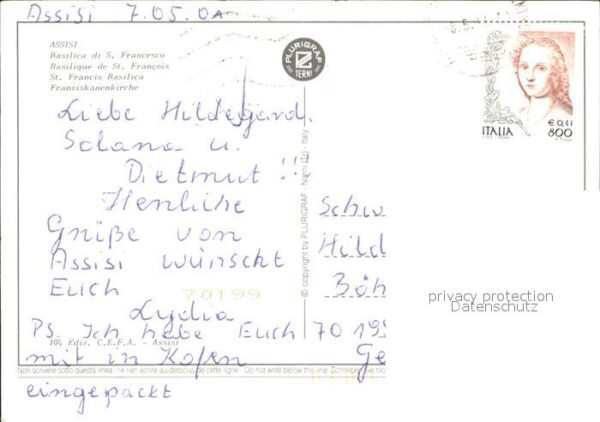 Assisi 7.05.01
ASSISI
Basilica di S. Francesco
Basilique de St. François
St. Francis Basilica
Franziskanenkirche
PLURIGRAF
TERNI
€ 0,41
ITALIA 800
Liebe Hildegard,
Solana u.
Dietmut !!
Herzliche
Grüße von
Assisi wünscht
Euch
Lydia
PS. Ich habe Euch
mit in Kofen
eingepackt
Schw
Hild
Böh
70 199
Ge
70199
© copyright by PLURIGRAF - Narni (Tr) - Italy
privacy protection
Datenschutz
104 Ediz. C.E.F.A. - Assisi
Non scrivere sotto questa linea - ne rien écrire au-dessous de cette ligne - Do not write below this line - Schreiben Sie nic